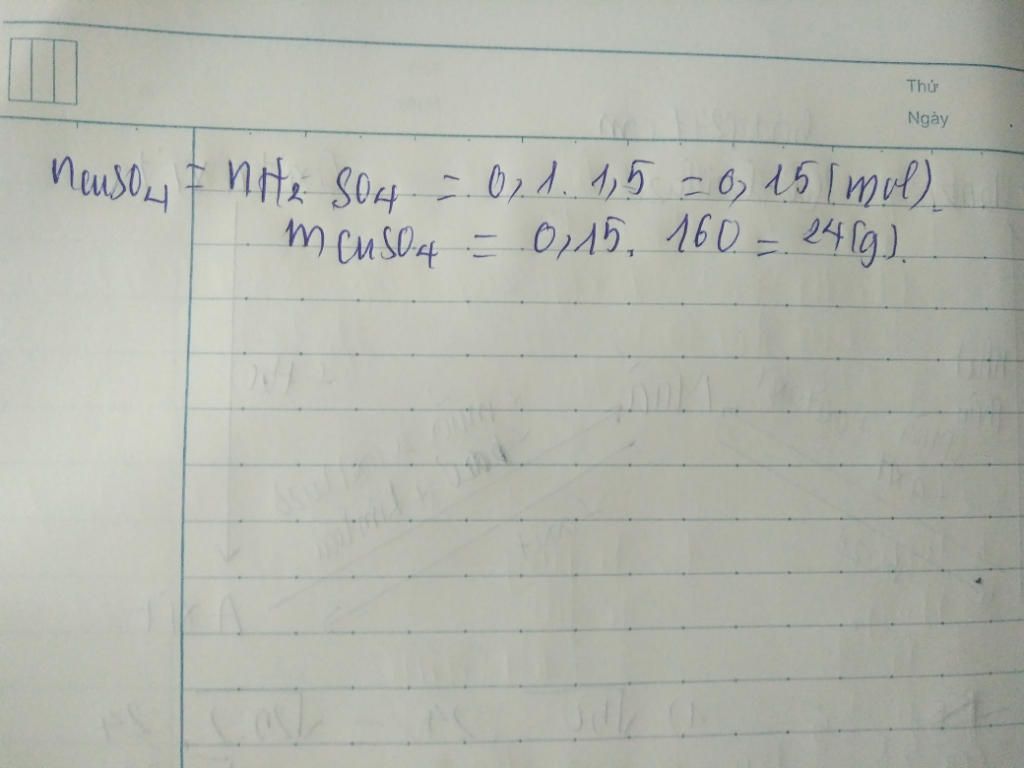 Thứ
Ngày
nCuSO4 = nH2SO4 = 0,1. 1,5 = 0,15 (mol).
mCuSO4 = 0,15. 160 = 24(g).